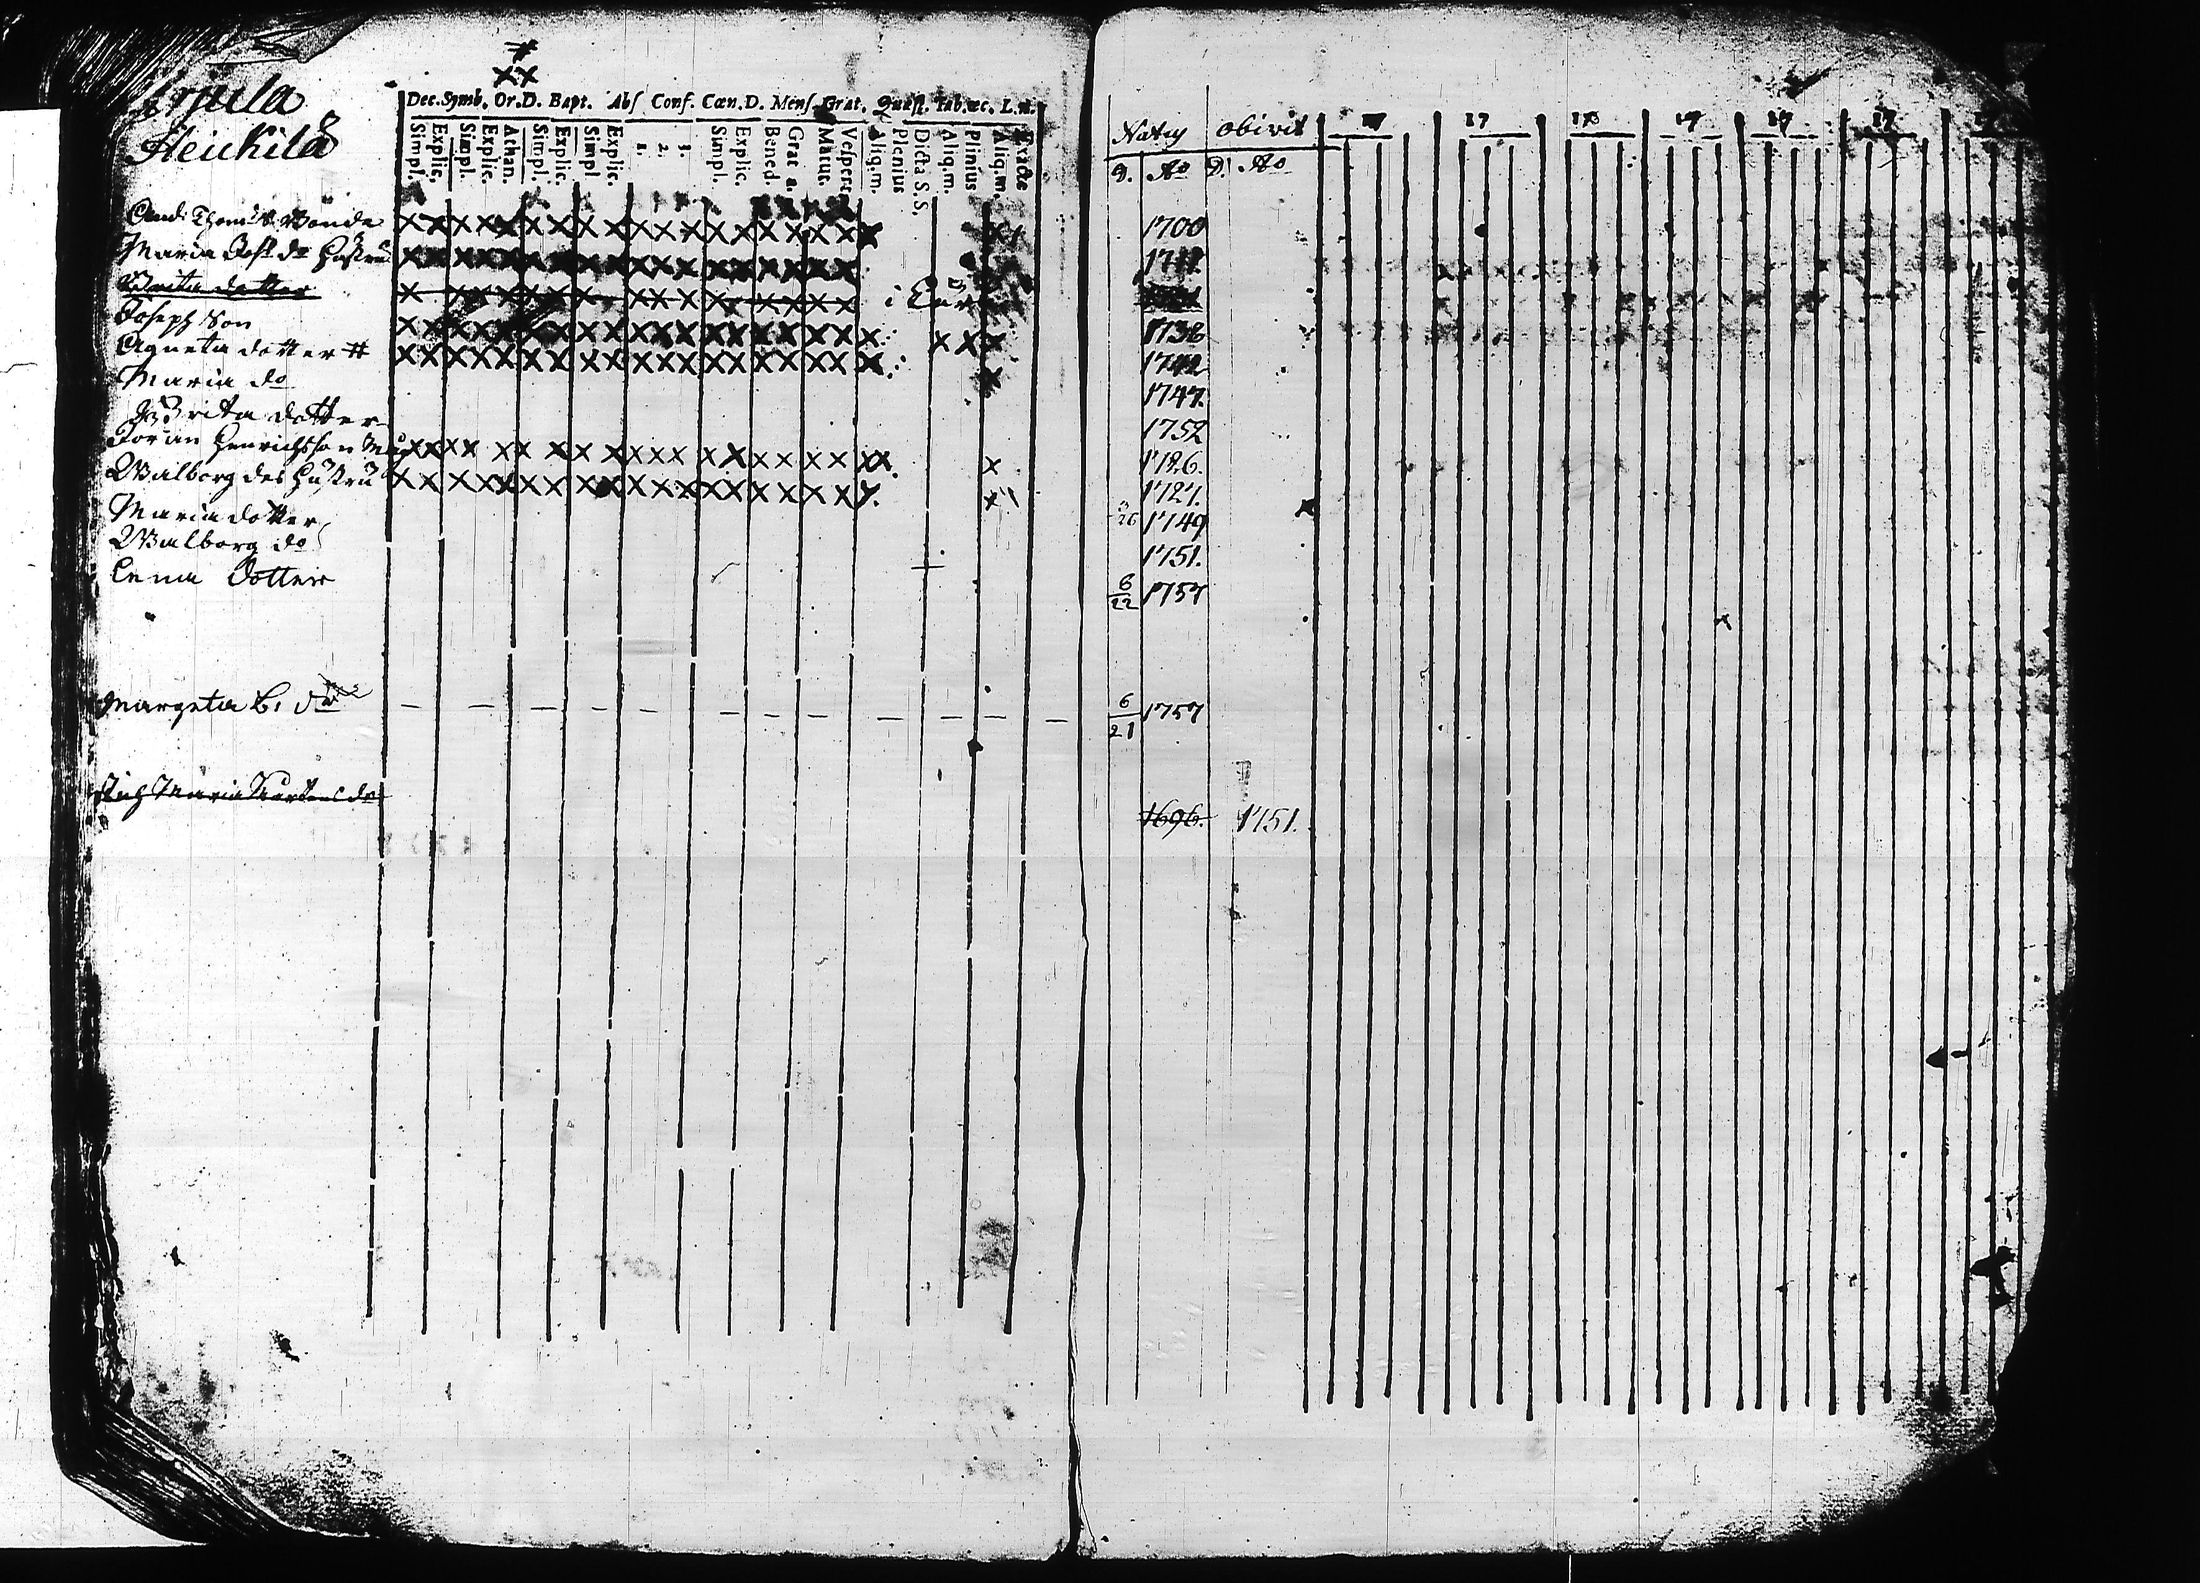 Heickilä
Dec. Symb. Or. D. Bapt. Abſ Conf. Cœn. D. Menſ. Grat. Quæſt. Tab. œc. L. n.
Simpl.
Explic.
Simpl.
Explic.
Athan.
Simpl.
Explic.
Simpl
Explic.
1.
2.
3.
Simpl.
Explic.
Bened.
Grat. a.
Matut.
Veſpert.
Aliq. m.
Plenius
Dicta S. S.
Aliq. m.
Plinius
Aliq. m.
Exacte
Natus obivit 17 17 17 17 17 17
D. Ao D. Ao
And: Thomæs. Bonde 1700
Maria
Brita dotter
Joseph Son 1738
Agneta dotter # 1742
Maria do 1747.
Brita dotter 1752
Jöran Henrichsson 1726.
Walborg des Hustru 1727.
Maria dotter 26 1749
Walborg do 1751.
Lena Dotter 6/22 1757
Margeta 6/21 1757
Maria 1696. 1751.